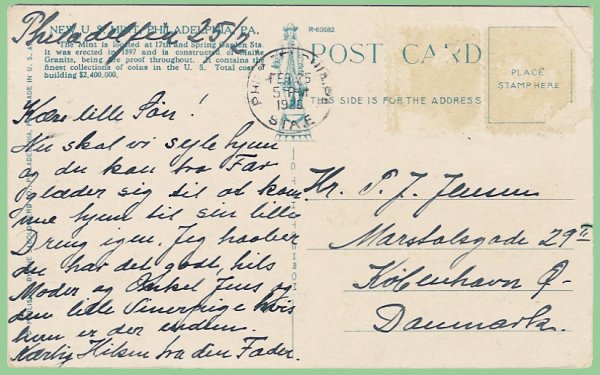 NEW U. S. MINT, PHILADELPHIA, PA.
Philadelfia 25/2.
"The Mint is located at 17th and Spring Garden Sts.
it was erected in 1897 and is constructed of Maine
Granite, being fire proof throughout. It contains the
finest collections of coins in the U. S. Total cost of
building $2,400,000.
Kære lille Søn!
Nu skal vi sejle hjem
og du kan tro Far
glæder sig til at kom
me hjem til sin lille
Dreng igen. Jeg haaber
du har det godt, hils
Moder og Onkel Jens og
den lille
hun er der endnu.
Kærlig Hilsen fra den Fader.
R-60582
POST CARD
THIS SIDE IS FOR THE ADDRESS
PLACE
STAMP HERE
FEB 25
5 PM
STA. E
Hr. P. J. Jensen
Marstalsgade 29
København Ø-
Danmark.